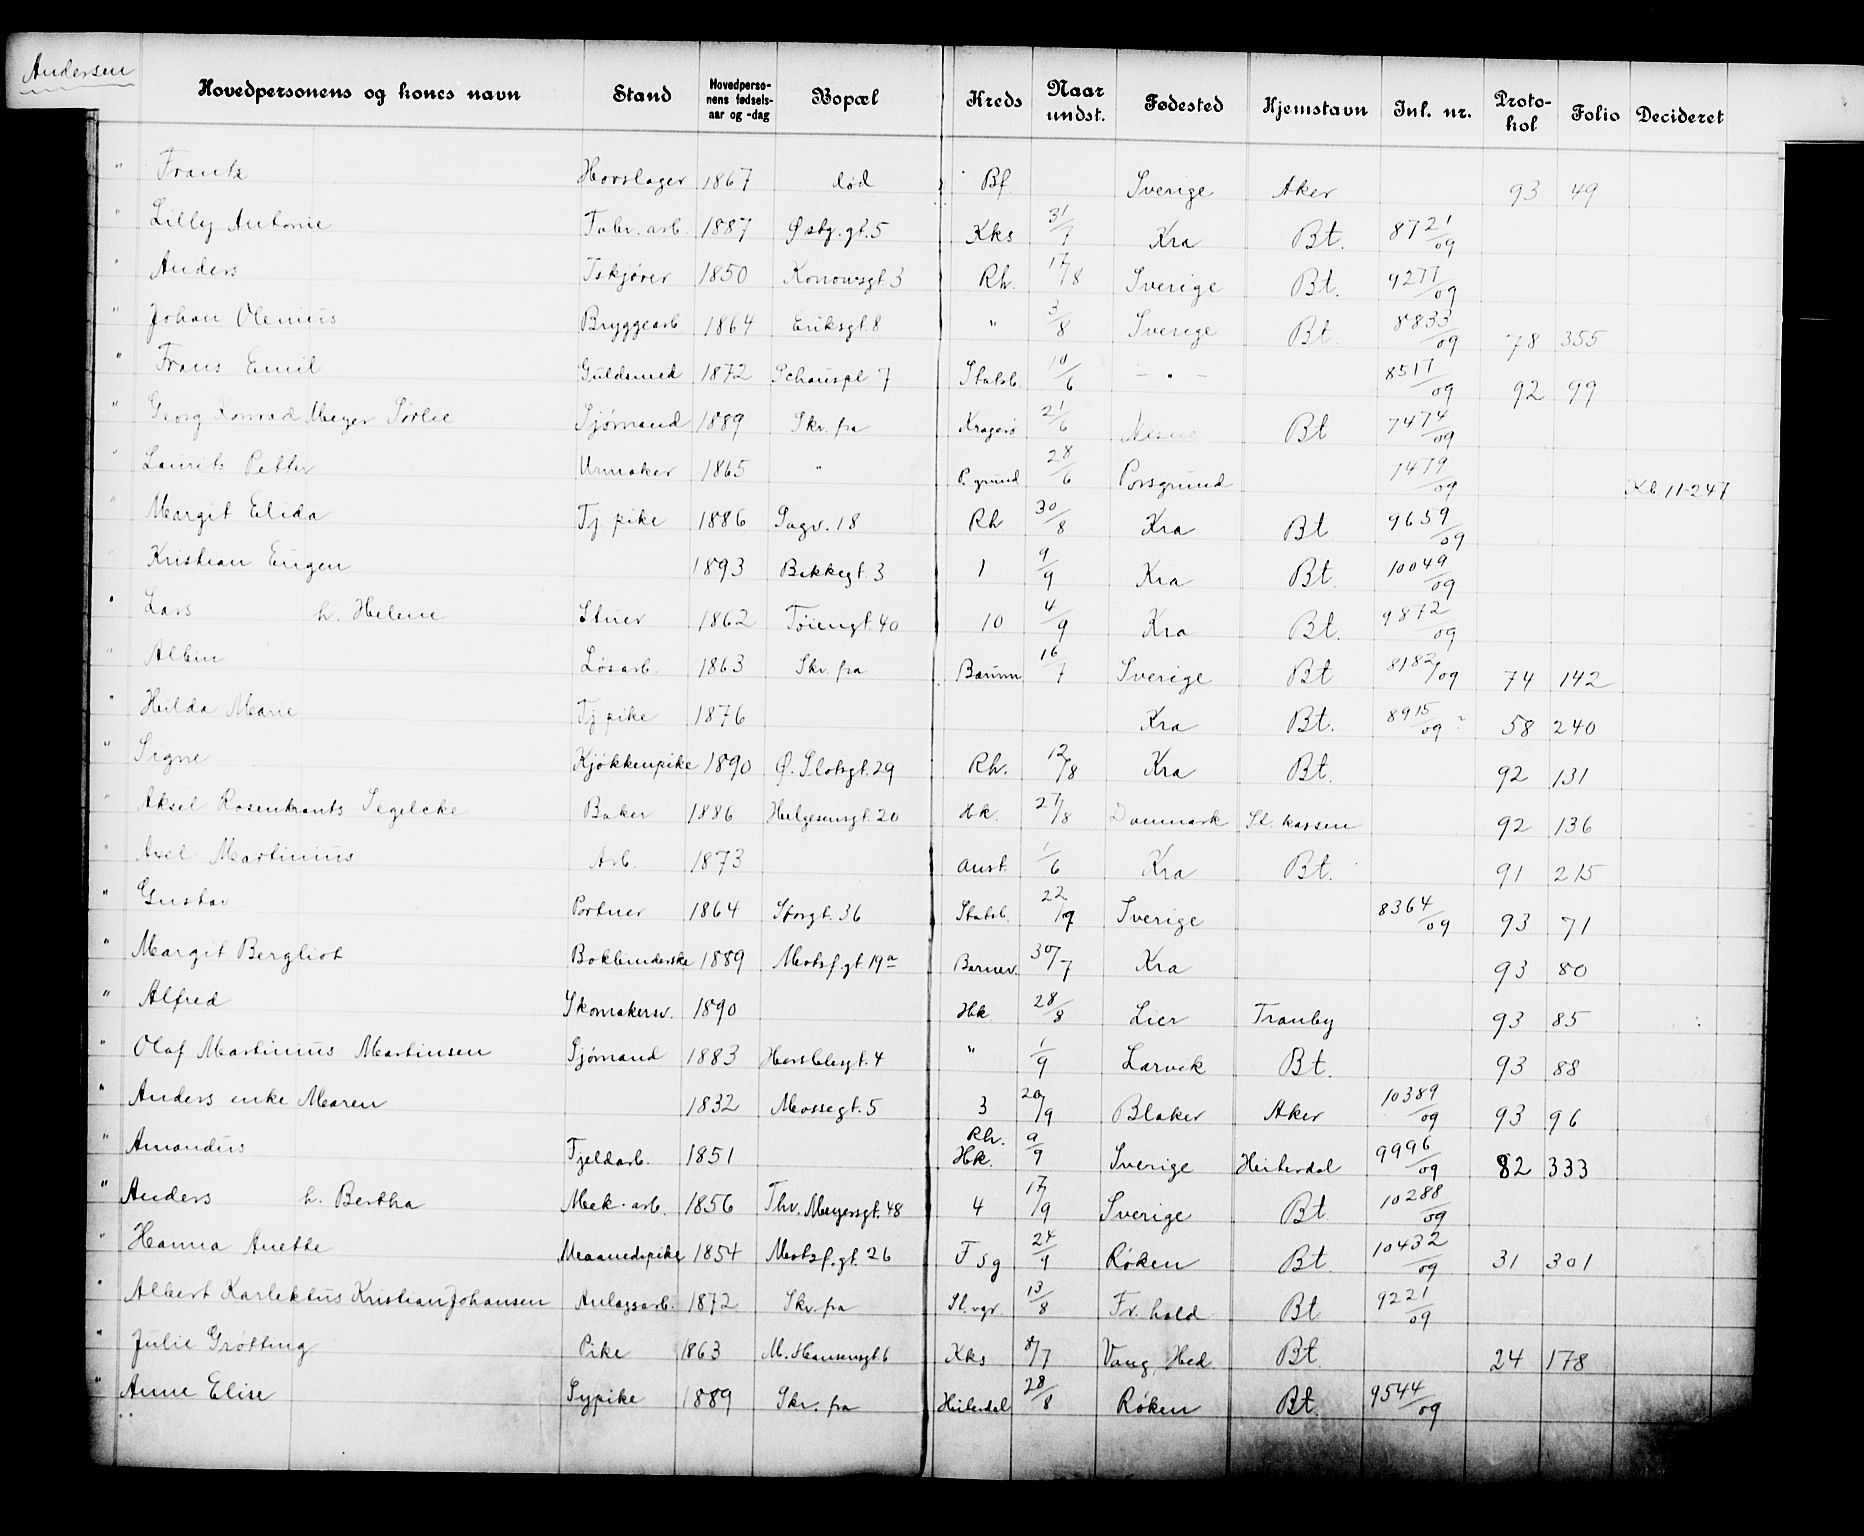 Andersen
Hovedpersonens og kones navn | Stand | Hovedpersonens fødselsaar og -dag | Bopæl | Kreds | Naar undst. | Fødested | Hjemstavn | Inl. nr. | Protokol | Folio | Decideret
" Frantz | Hovslager | 1867 | død | Bf. | Sverige | Aker | 93 | 49
" Lilly Antonie | Fabr. arb. | 1887 | Østg. gt. 5 | Kks | 31/7 | Kra | Bt. | 8721/09
" Anders | Tskjører | 1850 | Konowsgt. 3 | Rh. | 17/8 | Sverige | Bt. | 9277/09
" Johan Olenius | Bryggearb | 1864 | Eriksgt. 8 | " | 3/8 | Sverige | Bt. | 8833/09 | 78 | 355
" Frans Emil | Guldsmed | 1872 | Schauspl 7 | Statsb. | 10/6 | - " - | 8517/09 | 92 | 99
" Georg Konrad Meyer Sørlie | Sjømand | 1889 | Skr. fra | Kragerø | 21/6 | Bt | 7474/09
" Laurits Petter | Urmaker | 1865 | " | P.grund | 28/6 | Porsgrund | 7479/09 | Kb. 11-247
" Margit Elida | Tj pike | 1886 | Sagv. 18 | Rh | 30/8 | Kra | Bt. | 9659/09
Kristian Eugen | 1893 | Bakkegt. 3 | 1 | 9/9 | Kra | Bt. | 10049/09
" Lars h. Helene | Stuer | 1862 | Tøiengt. 40 | 10 | 4/9 | Kra | Bt. | 9872/09
" Albin | Løsarb. | 1863 | Skr. fra | Bærum | 16/7 | Sverige | Bt | 8182/09 | 74 | 142
" Hilda Marie | Tj pike | 1876 | Kra | Bt. | 8915/09 ? | 58 | 240
" Signe | Kjøkkenpike | 1890 | Ø. Slotsgt. 29 | Rh. | 12/8 | Kra | Bt. | 92 | 131
" Aksel Rosenkrants Segelcke | Baker | 1886 | Helgesensgt. 20 | Hk. | 27/8 | Danmark | St. kassen | 92 | 136
" Axel Martinius | Arb. | 1873 | Aust. | 1/6 | Kra | Bt. | 91 | 215
" Gustav | Portner | 1864 | Storgt. 36 | Statsb. | 22/7 | Sverige | 8364/09 | 93 | 71
" Margit Bergliot | Bokbinderske | 1889 | Motzf.gt. 19a | Barnev. | 30/7 | Kra | 93 | 80
" Alfred | Skomakersv. | 1890 | Hk | 28/8 | Lier | Tranby | 93 | 85
" Olaf Martinius Martinsen | Sjømand | 1883 | Herslebsgt. 4 | " | 1/9 | Larvik | Bt. | 93 | 88
" Anders enke Maren | 1832 | Mossegt. 5 | 3 | 20/9 | Blaker | Aker | 10389/09 | 93 | 96
" Amandus | Fjeldarb. | 1851 | Rh. Hk. | 9/9 | Sverige | Heiterdal | 9996/09 | 82 | 333
" Anders h. Bertha | Mek. arb. | 1856 | Thv. Meyersgt. 48 | 4 | 17/9 | Sverige | Bt | 10288/09
" Hanna Anette | Maanedspike | 1854 | Motzf.gt. 26 | Fsg | 24/9 | Røken | Bt. | 10432/09 | 31 | 301
" Albert Karlektus Kristian Johansen | Anlægsarb. | 1872 | Skr. fra | St.vgv. | 13/8 | Fr. hald | Bt | 9221/09
" Julie Grøtting | Pike | 1863 | M. Hansensgt 6 | Kks | 8/7 | Vang, Hed | Bt. | 24 | 178
" Anne Elise | Sypike | 1889 | Skr. fra | Heiterdal | 28/8 | Røken | Bt. | 9544/09